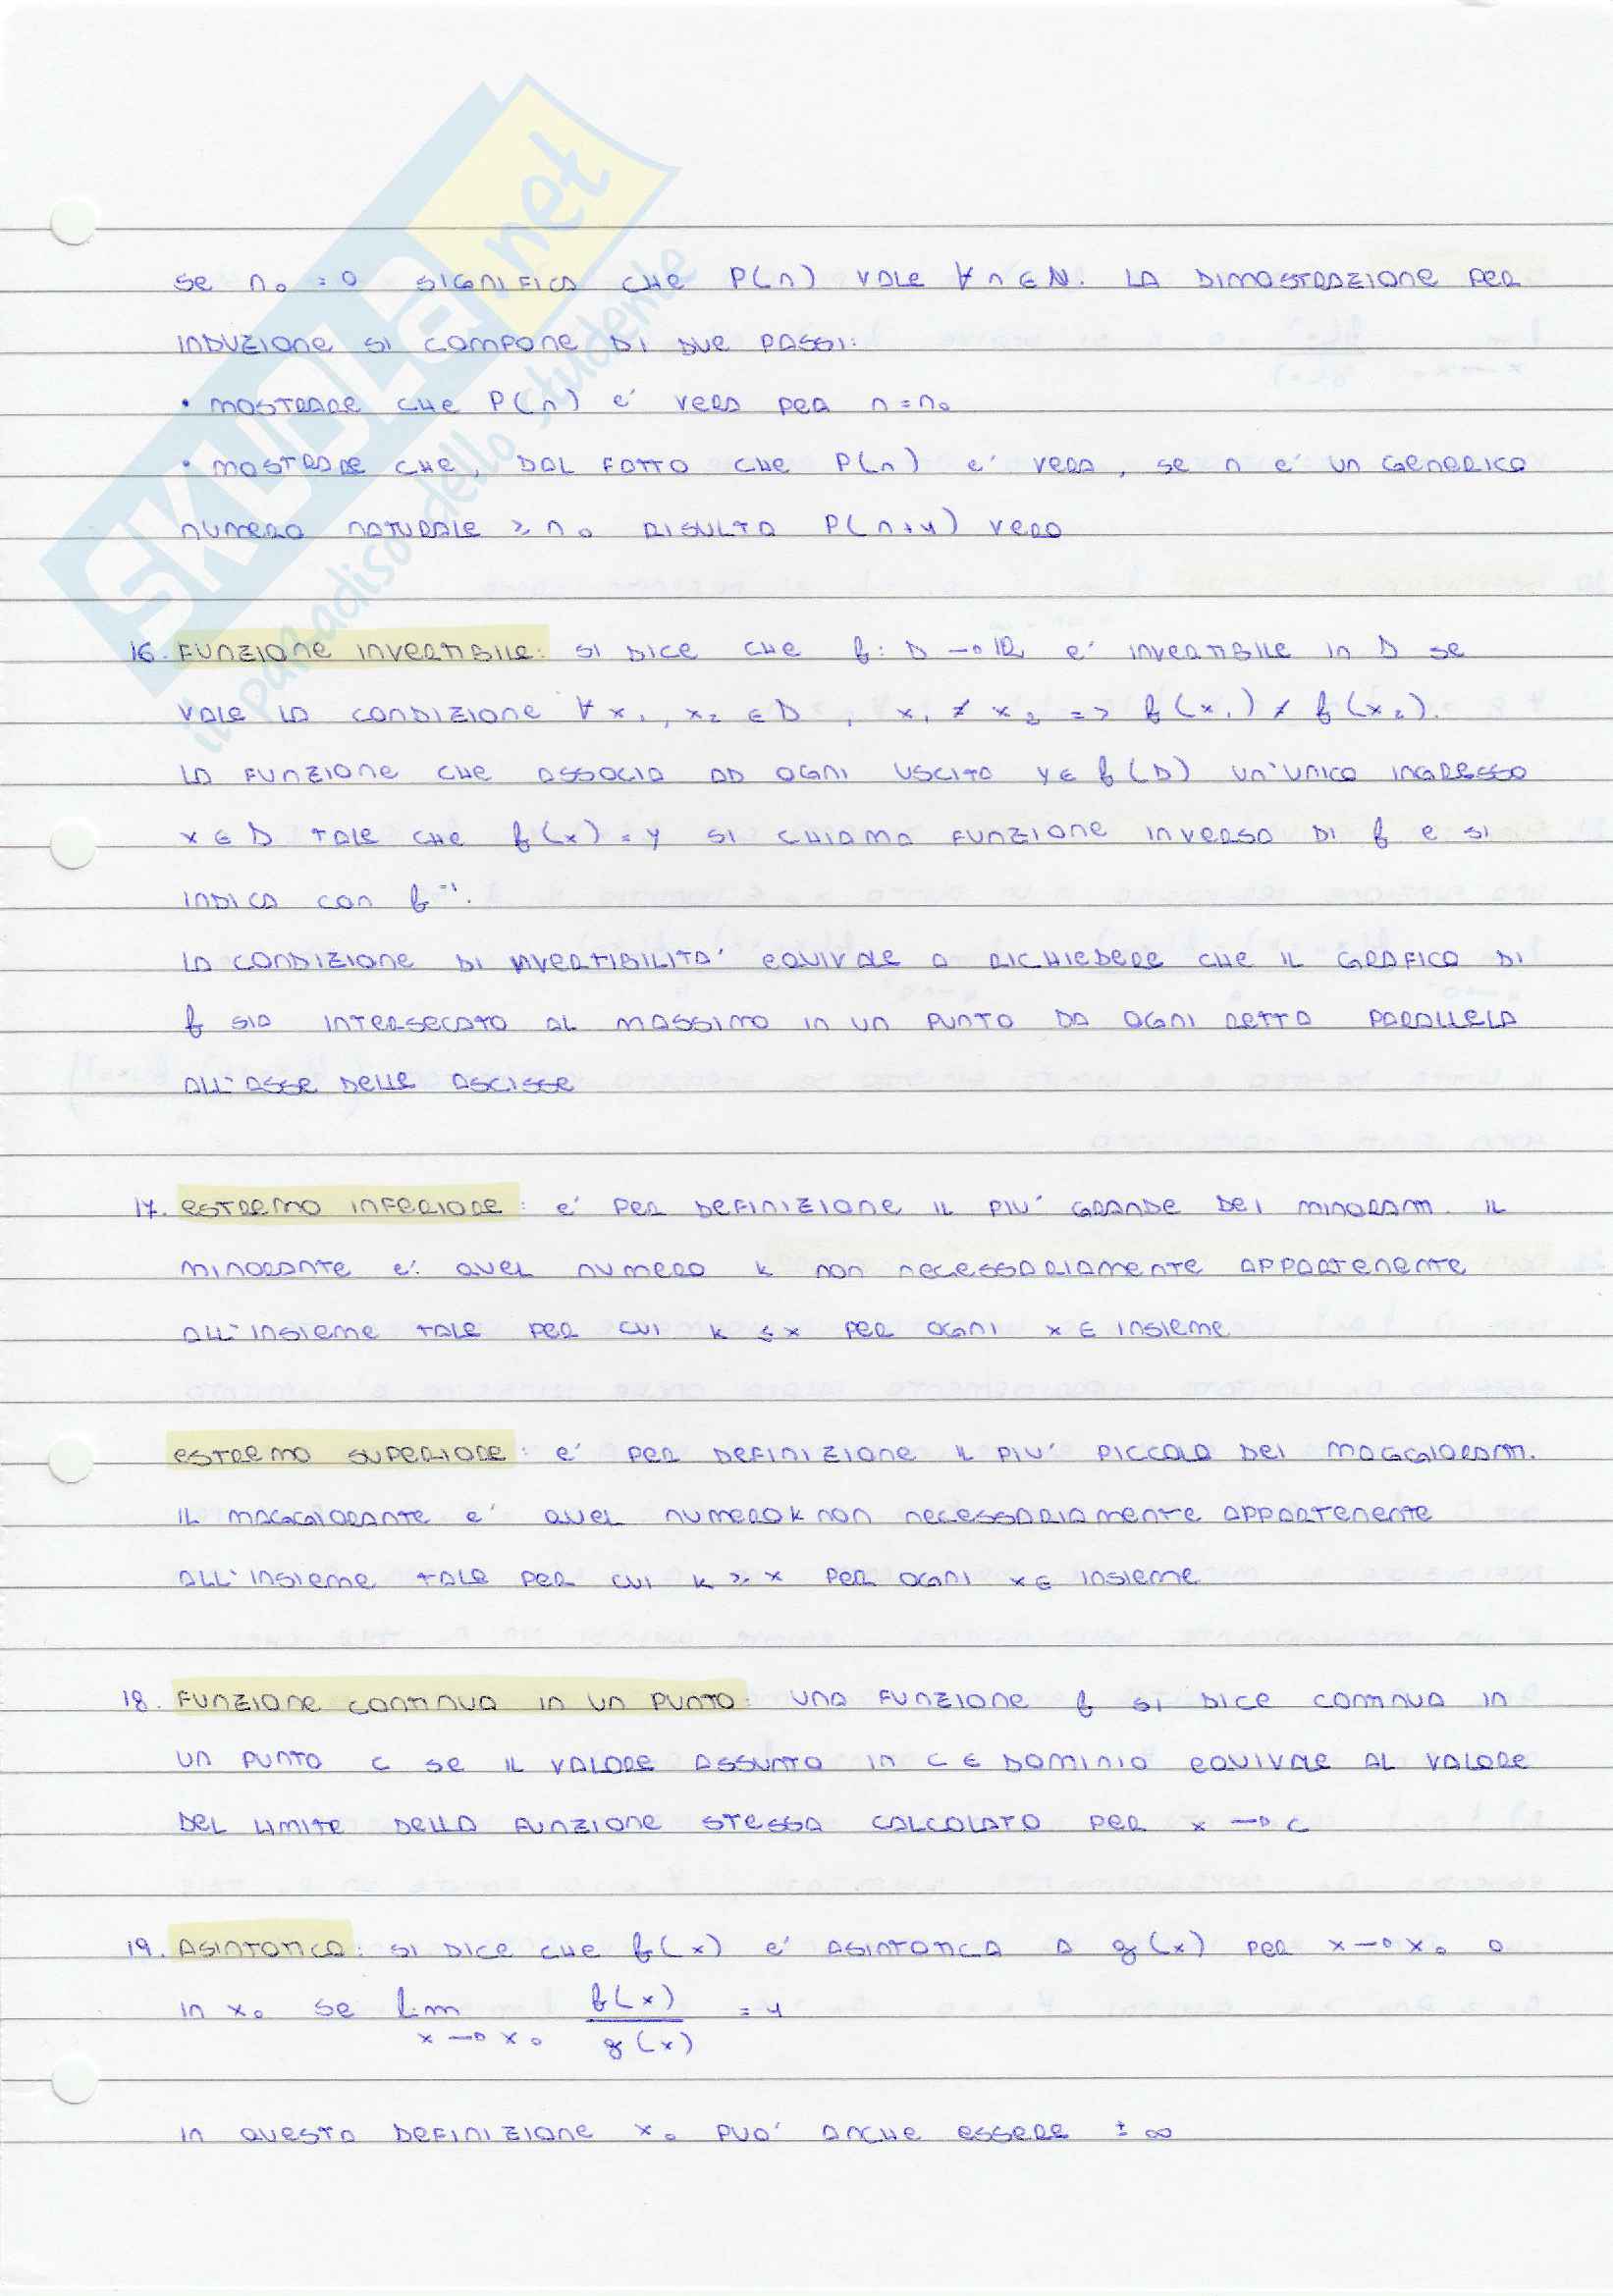 SKUOLA.net
il paradiso dello studente
SE n₀ = 0 SIGNIFICA CHE P(n) VALE ∀ n ∈ N. LA DIMOSTRAZIONE PER
INDUZIONE SI COMPONE DI DUE PASSI:
• MOSTRARE CHE P(n) E' VERA PER n = n₀
• MOSTRARE CHE, DAL FATTO CHE P(n) E' VERA, SE n E' UN GENERICO
NUMERO NATURALE ≥ n₀ RISULTA P(n+1) VERO
16. FUNZIONE INVERTIBILE: SI DICE CHE f: D → R E' INVERTIBILE IN D SE
VALE LA CONDIZIONE ∀ x₁, x₂ ∈ D, x₁ ≠ x₂ => f(x₁) ≠ f(x₂).
LA FUNZIONE CHE ASSOCIA AD OGNI USCITA y ∈ f(D) UN'UNICO INGRESSO
x ∈ D TALE CHE f(x) = y SI CHIAMA FUNZIONE INVERSA DI f E SI
INDICA CON f⁻¹.
LA CONDIZIONE DI INVERTIBILITA' EQUIVALE A RICHIEDERE CHE IL GRAFICO DI
f SIA INTERSECATO AL MASSIMO IN UN PUNTO DA OGNI RETTA PARALLELA
ALL'ASSE DELLE ASCISSE
17. ESTREMO INFERIORE: E' PER DEFINIZIONE IL PIU' GRANDE DEI MINORANTI. IL
MINORANTE E' QUEL NUMERO K NON NECESSARIAMENTE APPARTENENTE
ALL'INSIEME TALE PER CUI K ≤ x PER OGNI x ∈ INSIEME
ESTREMO SUPERIORE: E' PER DEFINIZIONE IL PIU' PICCOLO DEI MAGGIORANTI.
IL MAGGIORANTE E' QUEL NUMERO K NON NECESSARIAMENTE APPARTENENTE
ALL'INSIEME TALE PER CUI K ≥ x PER OGNI x ∈ INSIEME
18. FUNZIONE CONTINUA IN UN PUNTO: UNA FUNZIONE f SI DICE CONTINUA IN
UN PUNTO C SE IL VALORE ASSUNTO IN C ∈ DOMINIO EQUIVALE AL VALORE
DEL LIMITE DELLA FUNZIONE STESSA CALCOLATO PER x → C
19. ASINTOTICA: SI DICE CHE f(x) E' ASINTOTICA A g(x) PER x → x₀ O
IN x₀ SE lim x → x₀ f(x)/g(x) = 1
IN QUESTA DEFINIZIONE x₀ PUO' ANCHE ESSERE ± ∞